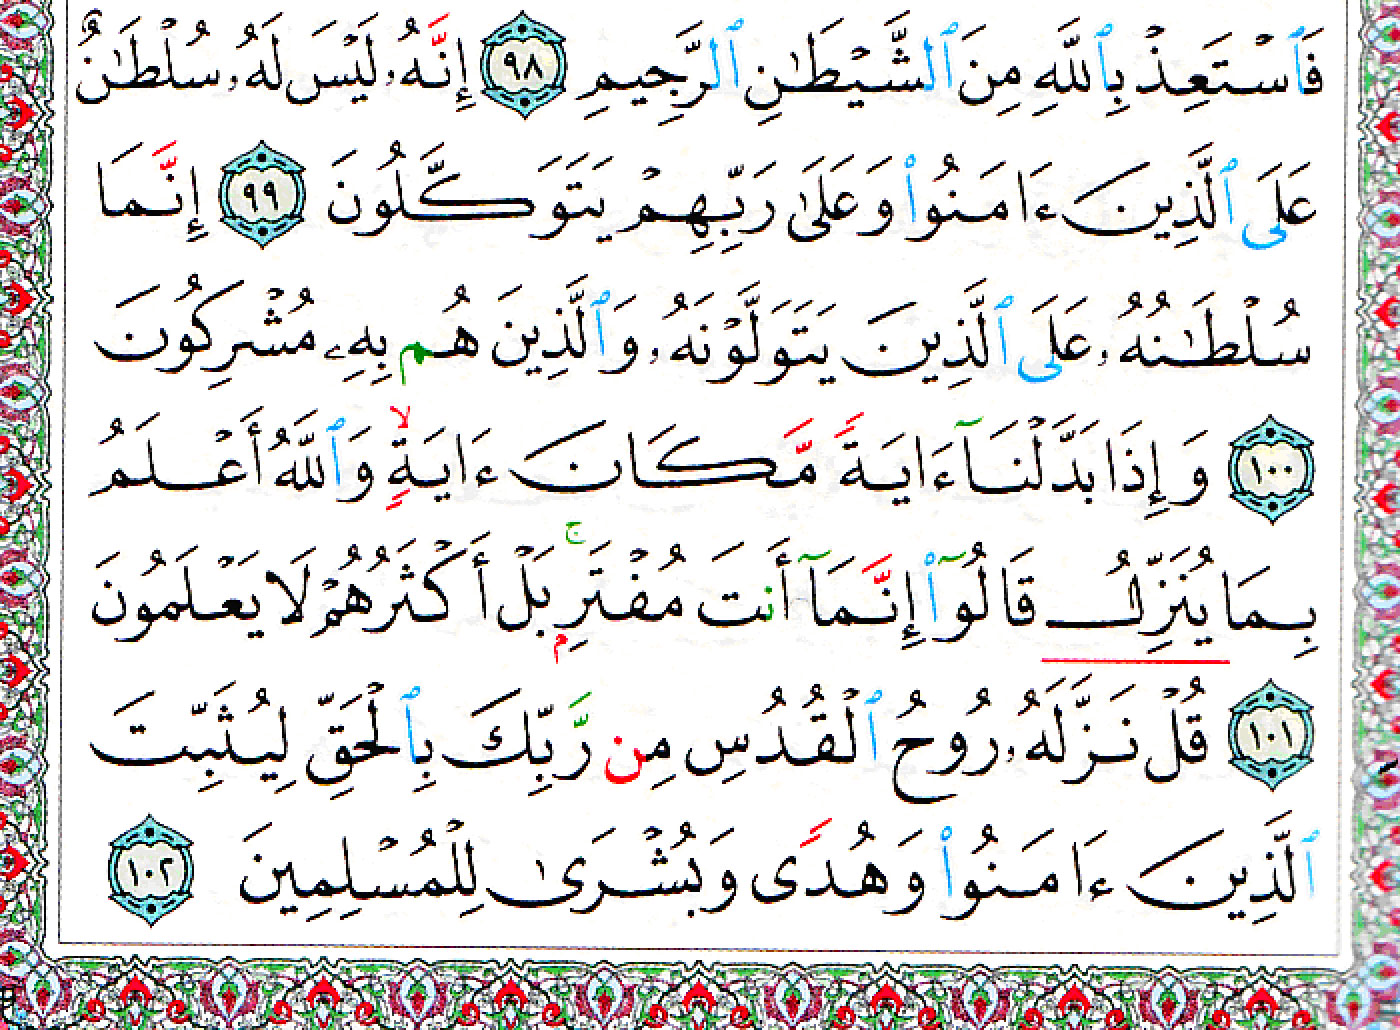 فَٱسْتَعِذْ بِٱللَّهِ مِنَ ٱلشَّيْطَٰنِ ٱلرَّجِيمِ ٩٨ إِنَّهُۥ لَيْسَ لَهُۥ سُلْطَٰنٌ
عَلَى ٱلَّذِينَ ءَامَنُوا۟ وَعَلَىٰ رَبِّهِمْ يَتَوَكَّلُونَ ٩٩ إِنَّمَا
سُلْطَٰنُهُۥ عَلَى ٱلَّذِينَ يَتَوَلَّوْنَهُۥ وَٱلَّذِينَ هُم بِهِۦ مُشْرِكُونَ
١٠٠ وَإِذَا بَدَّلْنَآ ءَايَةً مَّكَانَ ءَايَةٍ ۙ وَٱللَّهُ أَعْلَمُ
بِمَا يُنَزِّلُ قَالُوٓا۟ إِنَّمَآ أَنتَ مُفْتَرٍۭ ۚ بَلْ أَكْثَرُهُمْ لَا يَعْلَمُونَ
١٠١ قُلْ نَزَّلَهُۥ رُوحُ ٱلْقُدُسِ مِن رَّبِّكَ بِٱلْحَقِّ لِيُثَبِّتَ
ٱلَّذِينَ ءَامَنُوا۟ وَهُدًى وَبُشْرَىٰ لِلْمُسْلِمِينَ ١٠٢